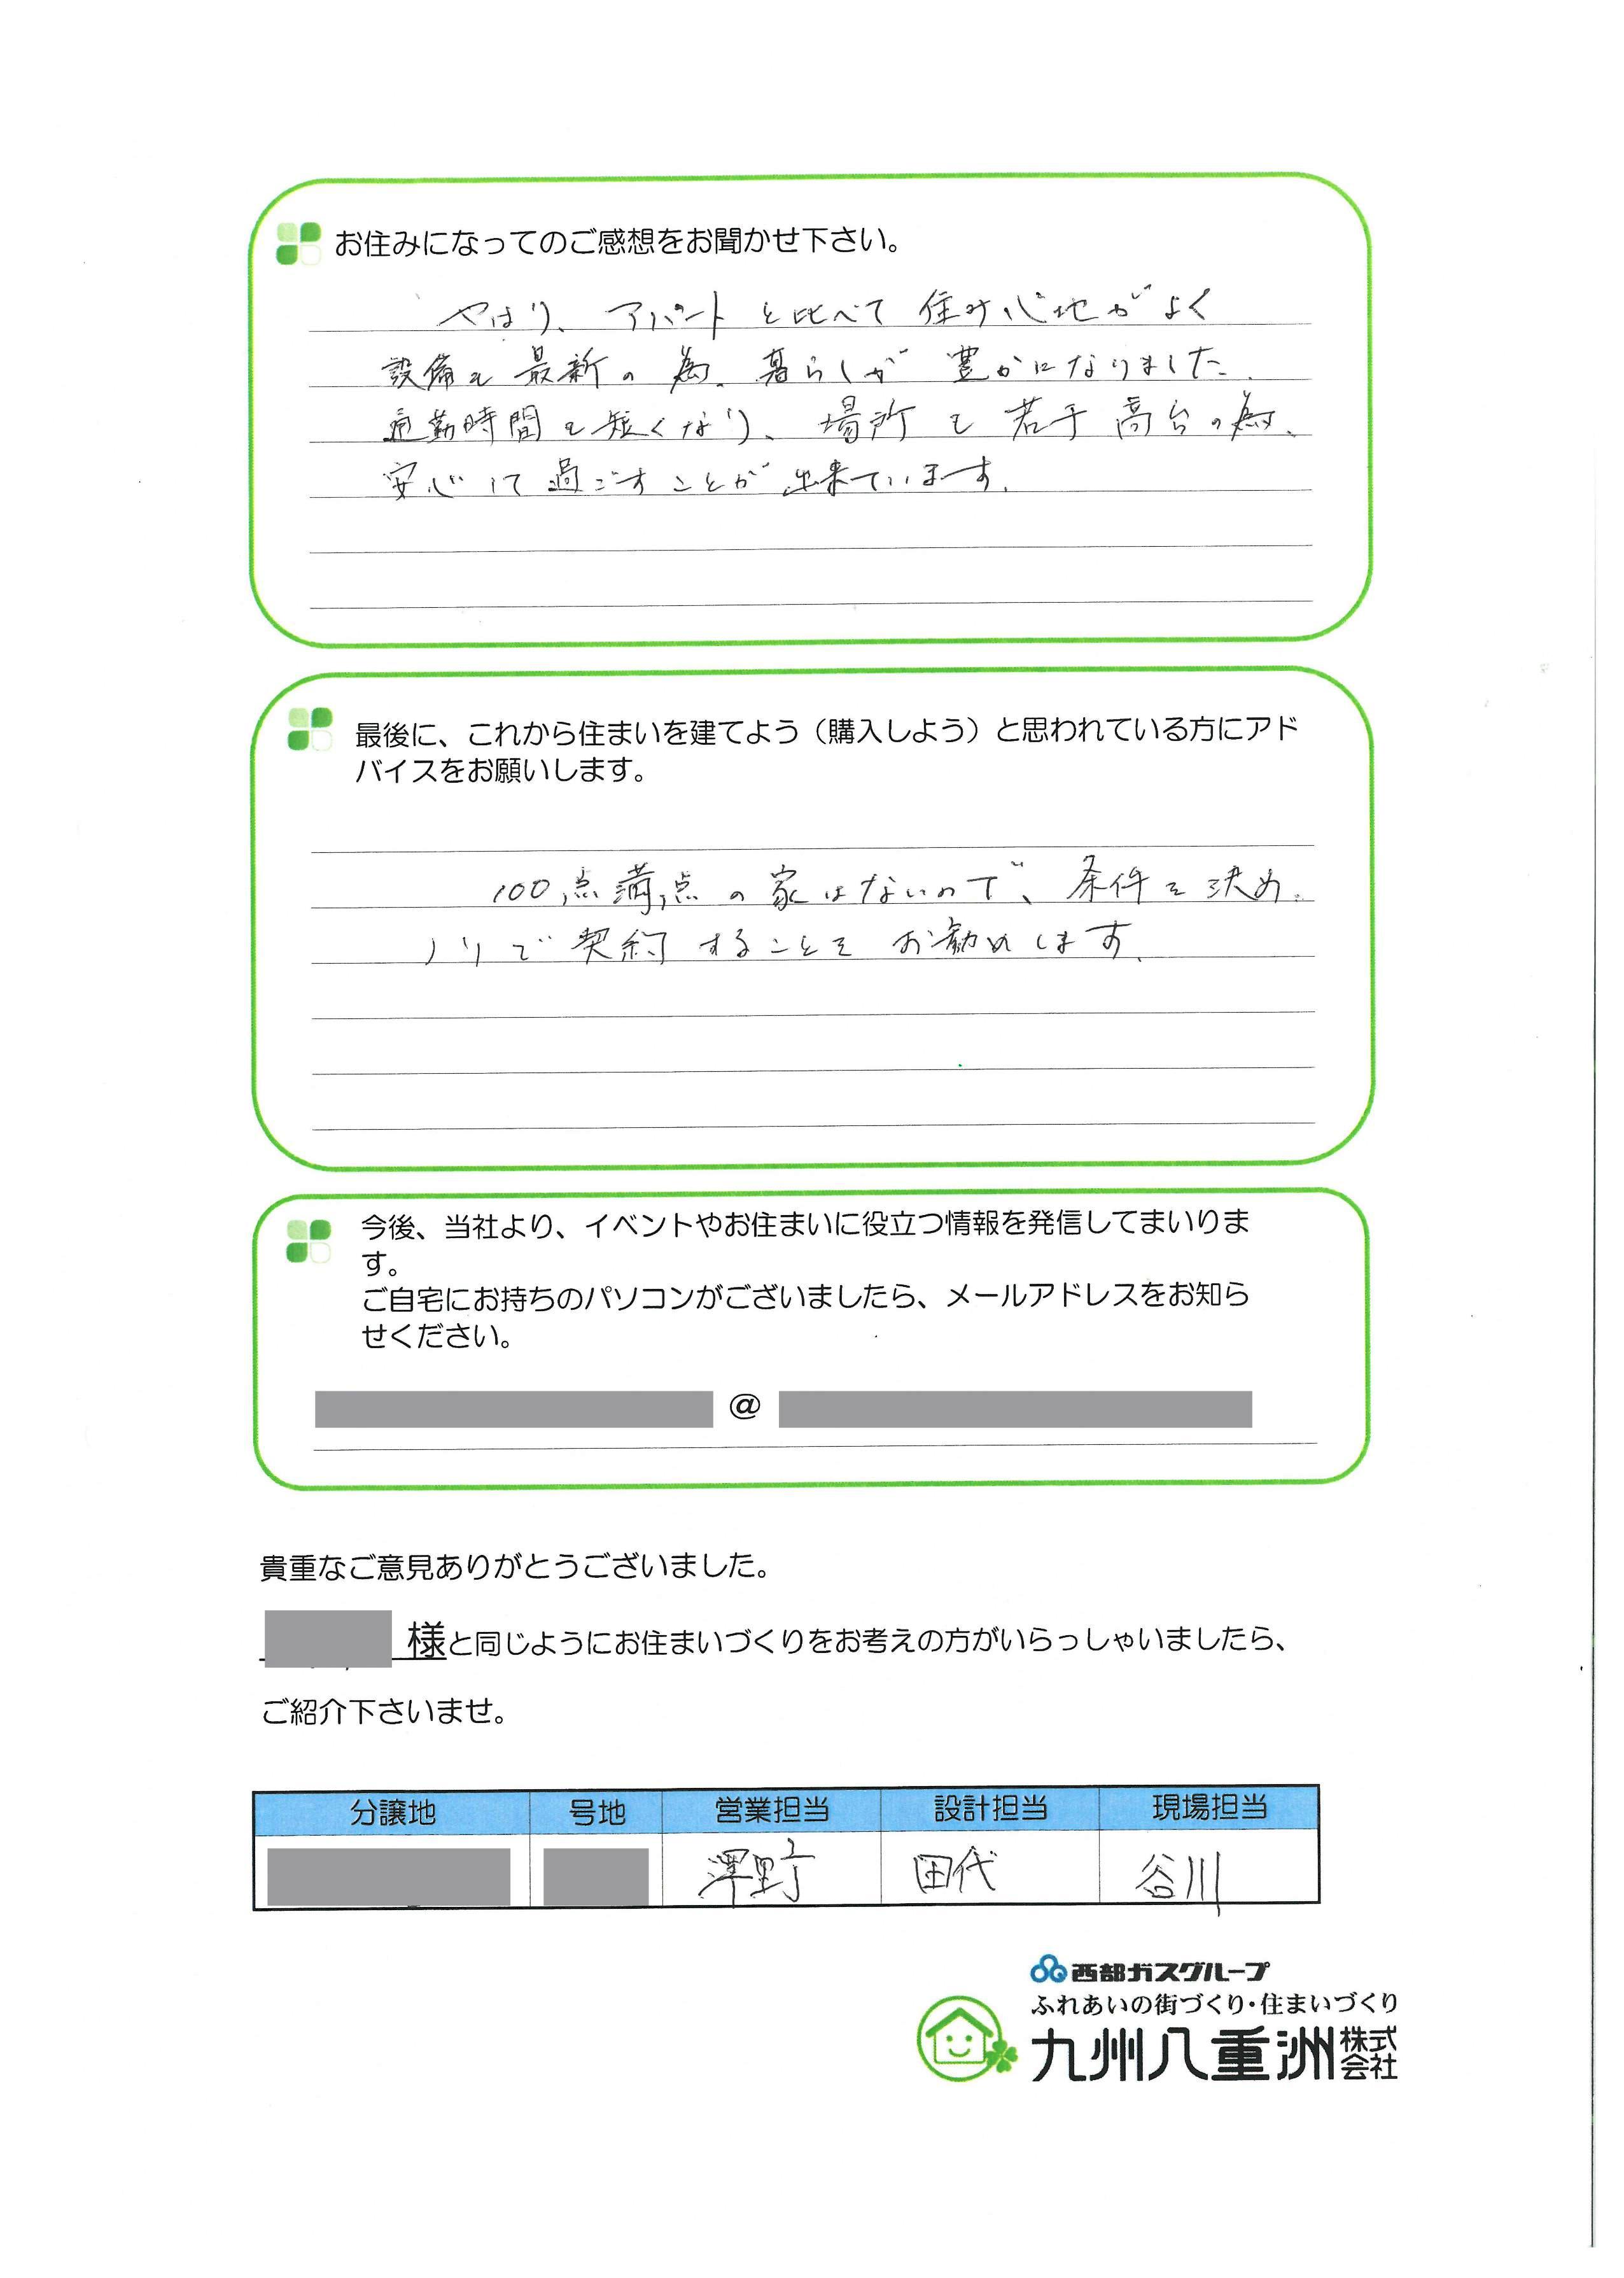 お住みになってのご感想をお聞かせ下さい。
やはり、アパートと比べて住み心地がよく
設備も最新の為、暮らしが豊かになりました。
通勤時間も短くなり、場所も若干高台の為、
安心して過ごすことが出来ています。
最後に、これから住まいを建てよう（購入しよう）と思われている方にアド
バイスをお願いします。
100点満点の家はないので、条件を決め、
ノリで契約することをお勧めします。
今後、当社より、イベントやお住まいに役立つ情報を発信してまいりま
す。
ご自宅にお持ちのパソコンがございましたら、メールアドレスをお知ら
せください。
@
貴重なご意見ありがとうございました。
様と同じようにお住まいづくりをお考えの方がいらっしゃいましたら、
ご紹介下さいませ。
分譲地 号地 営業担当 設計担当 現場担当
澤野 田代 谷川
西部ガスグループ
ふれあいの街づくり・住まいづくり
九州八重洲株式会社